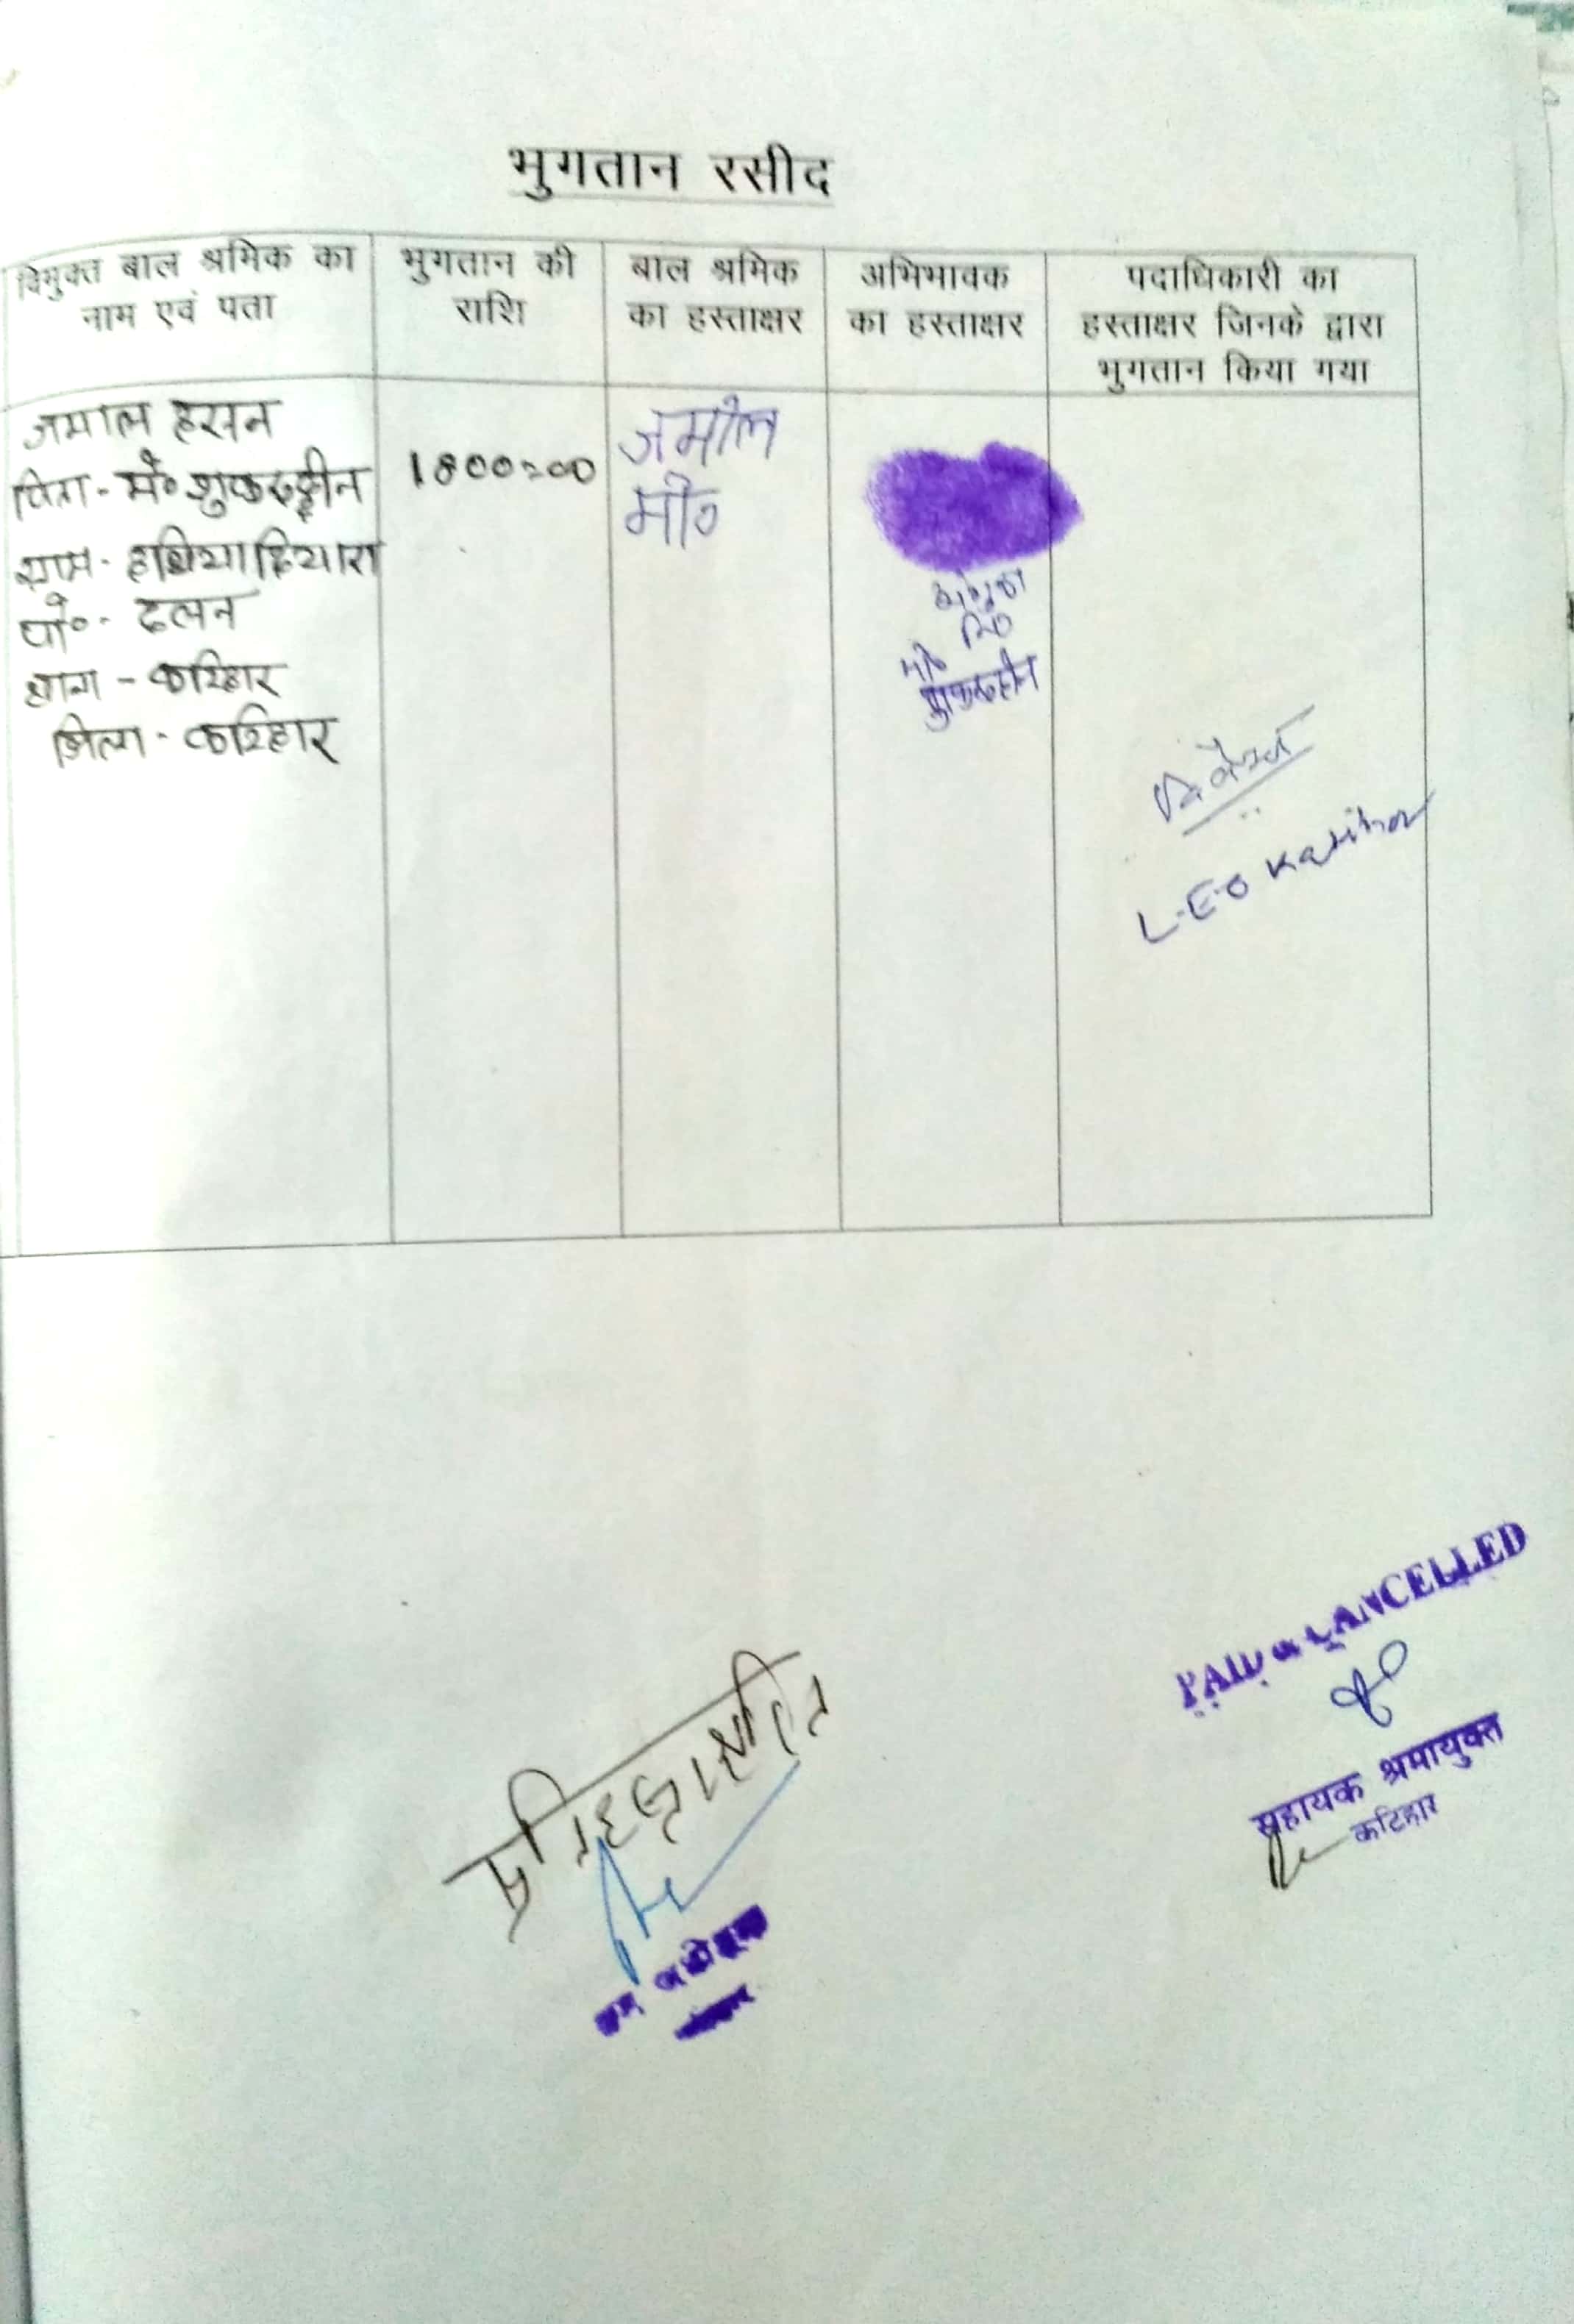 भुगतान रसीद
विमुक्त बाल श्रमिक का
नाम एवं पता
भुगतान की
राशि
बाल श्रमिक
का हस्ताक्षर
अभिभावक
का हस्ताक्षर
पदाधिकारी का
हस्ताक्षर जिनके द्वारा
भुगतान किया गया
जमाल हसन
पिता - मो० शुकरुद्दीन
ग्राम -
पो० - दलन
थाना - कटिहार
जिला - कटिहार
1800=00
जमाल
मो०
मो०
शुकरुद्दीन
L.E.O Katihar
PAID & CANCELLED
सहायक श्रमायुक्त
कटिहार
प्रतिहस्ताक्षरित